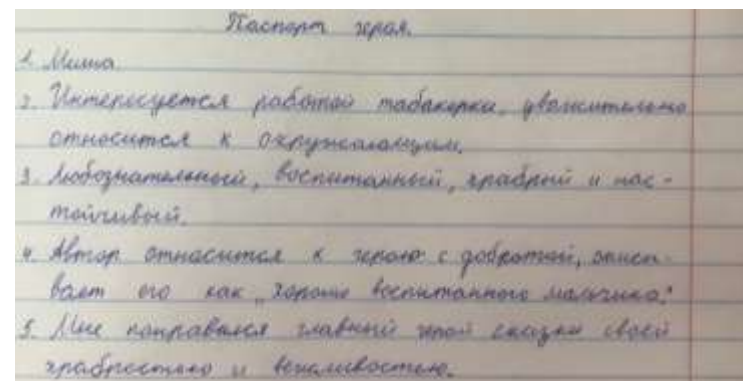 Паспорт героя.
1. Миша
2. Интересуется работой табакерки, уважительно
относится к окружающим.
3. Любознательный, воспитанный, храбрый и нас-
тойчивый.
4. Автор относится к герою с добротой, описы-
вает его как „хорошо воспитанного мальчика."
5. Мне понравился главный герой сказки своей
храбростью и вежливостью.